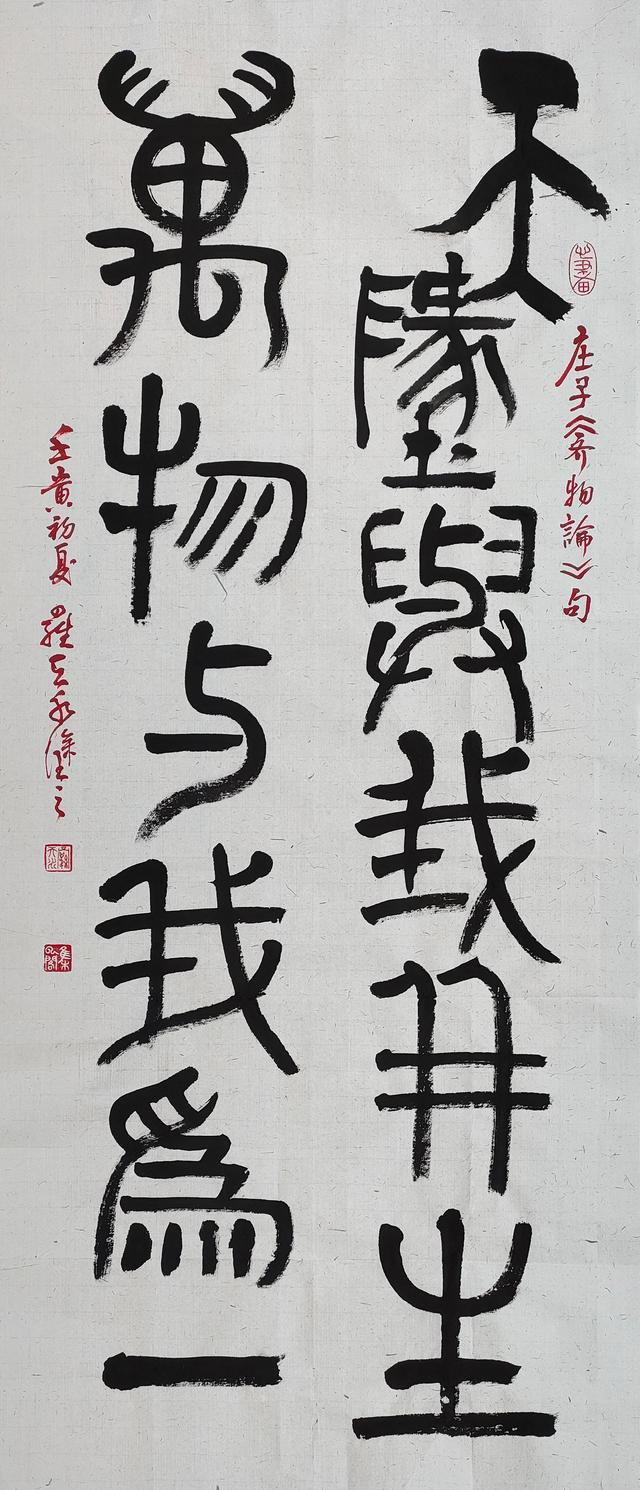 庄子《齐物論》句
天墬與我并生
萬物与我為一
壬寅初夏 羅天永 之